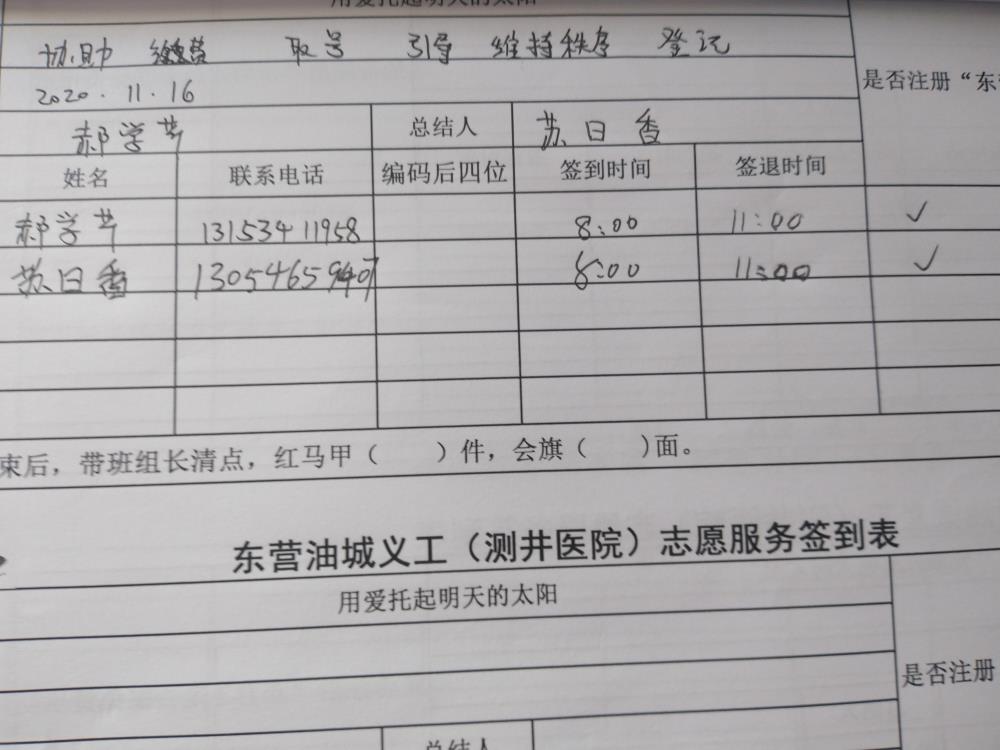 用爱托起明天的太阳
协助 缴费 取号 引导 维持秩序 登记
2020.11.16
是否注册“东
郝学芹 总结人 苏日香
姓名 联系电话 编码后四位 签到时间 签退时间
郝学芹 13153411958 8:00 11:00 ✓
苏日香 8:00 11:00 ✓
束后，带班组长清点，红马甲（ ）件，会旗（ ）面。
东营油城义工（测井医院）志愿服务签到表
用爱托起明天的太阳
是否注册
总结人